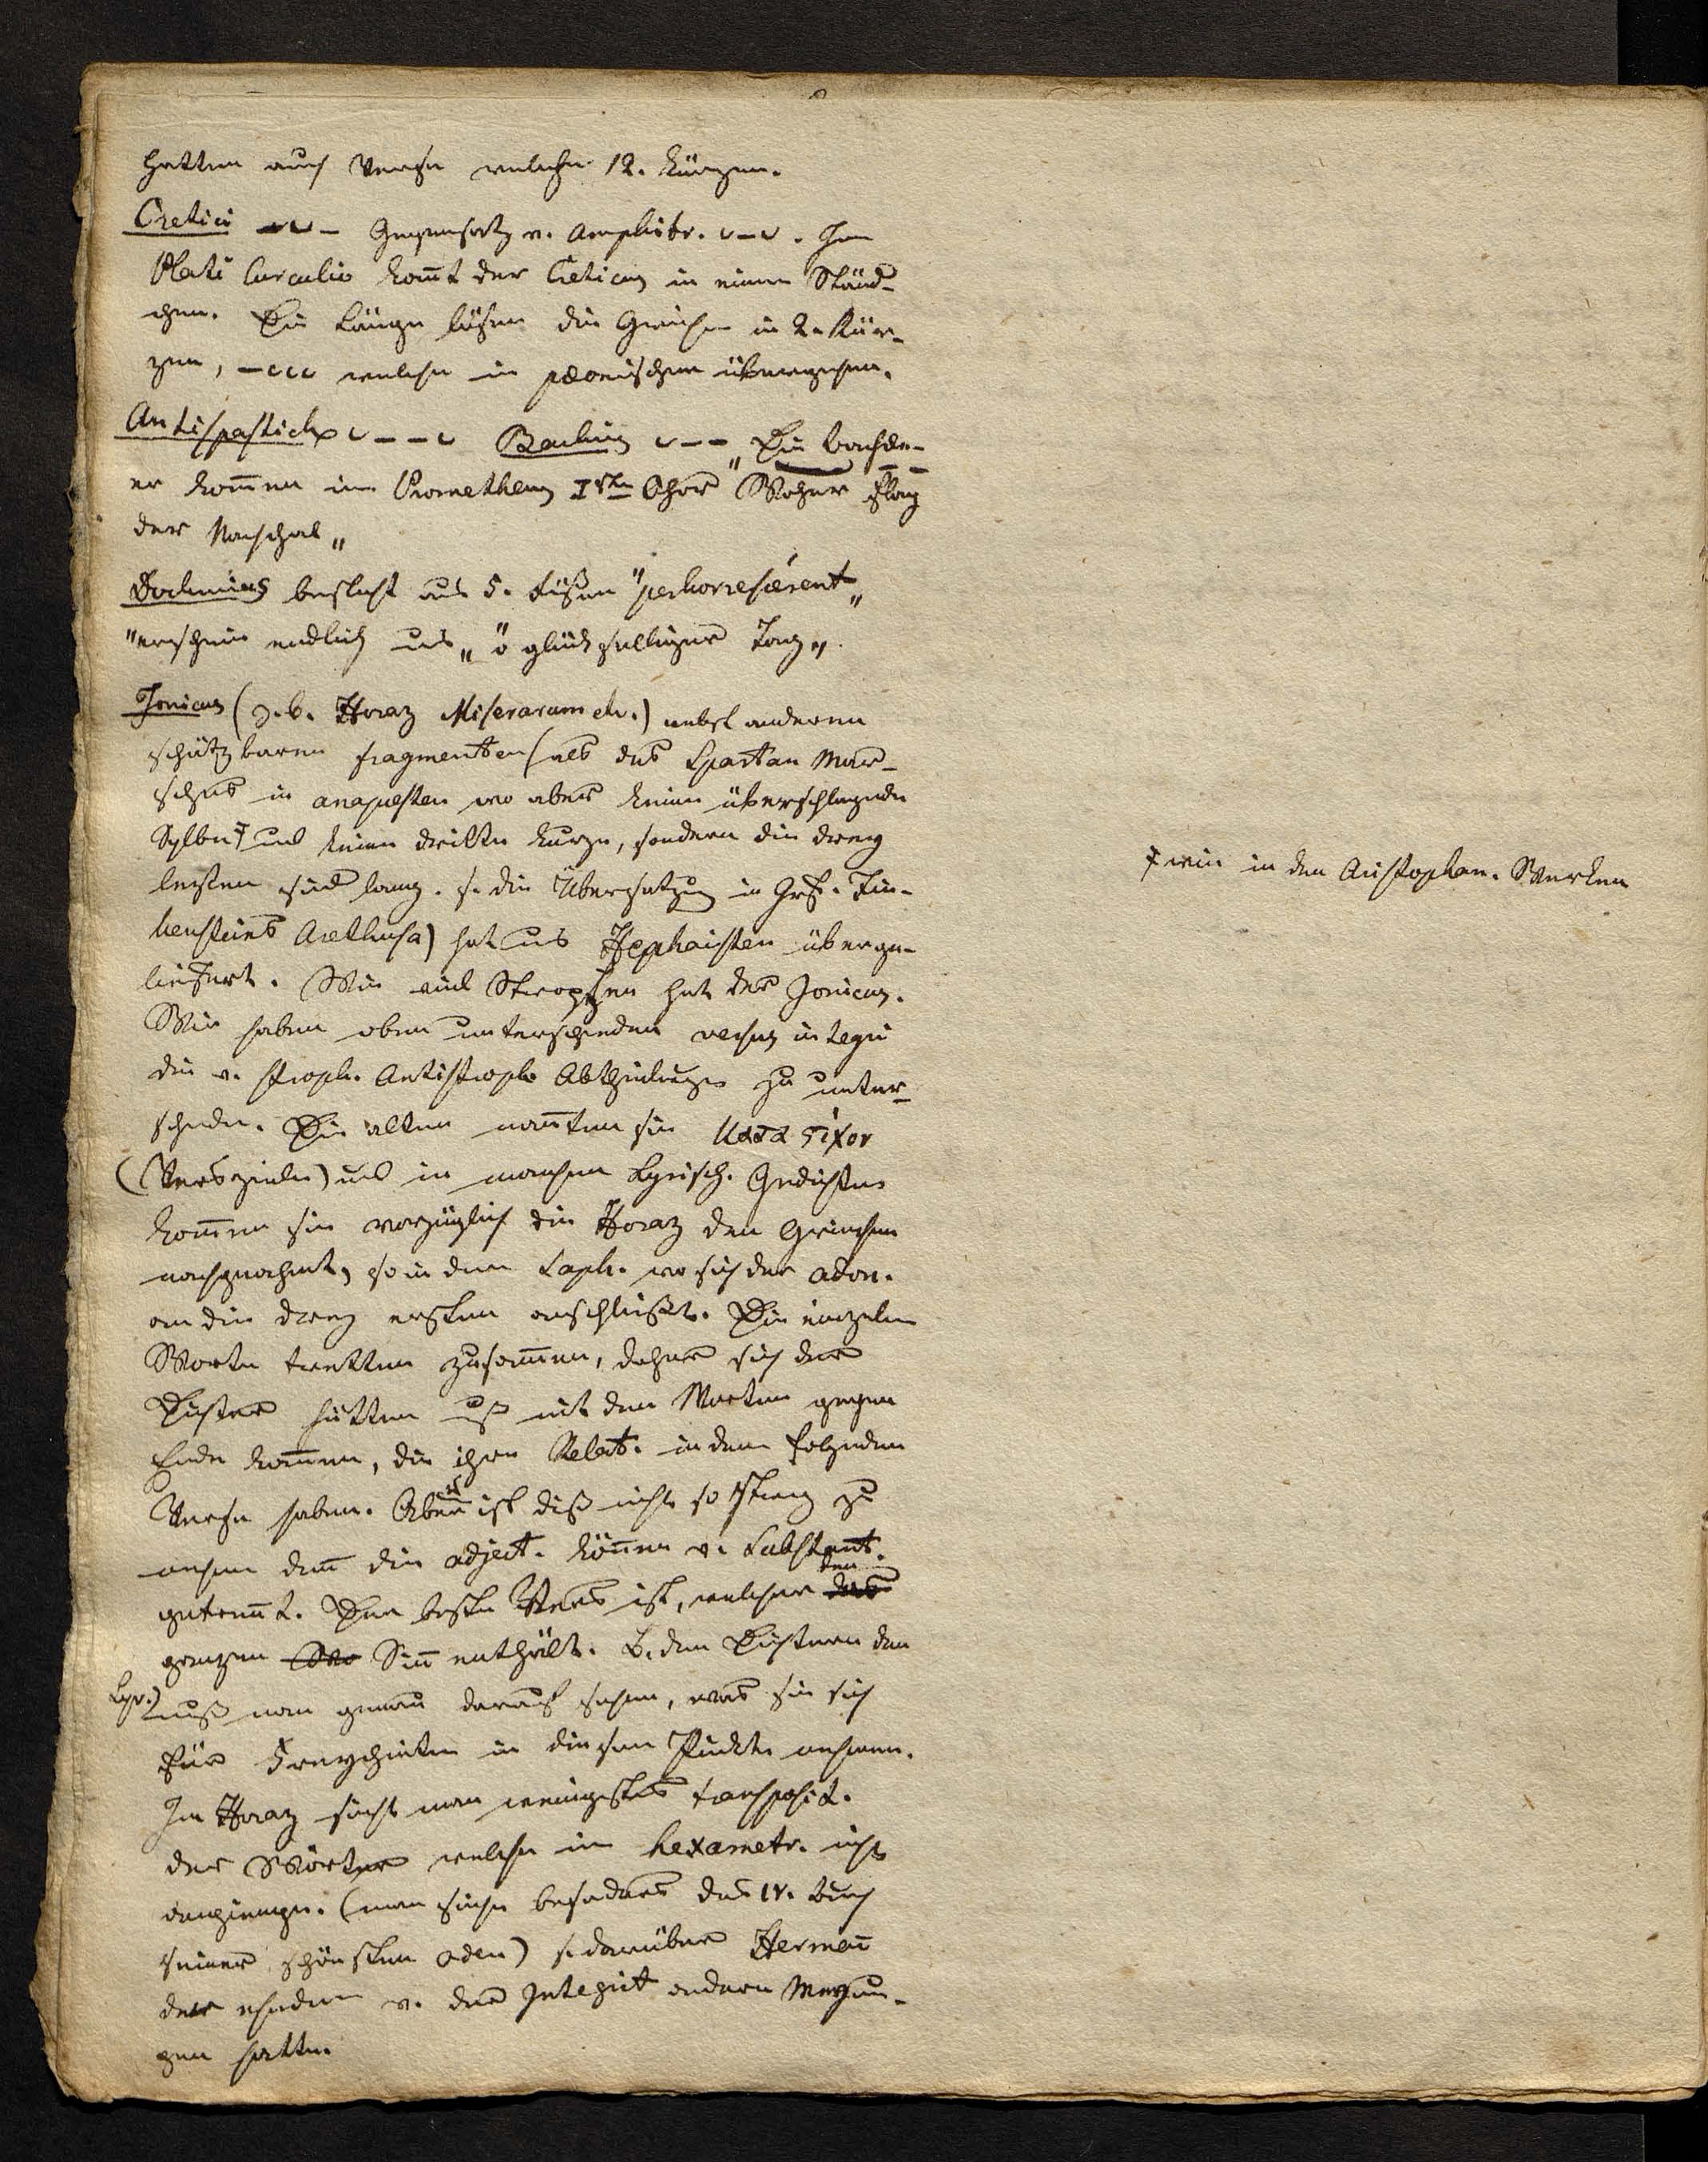 hatten auch Verse welche 12. Kürzen.
Cretici –∪– Gegensatz v. Amphibr. ∪–∪. Im
Plati Curculio kom̄t der Creticus in einem Ständ-
chen. Die Länge lösen die Griechen in 2. Kür-
zen, –∪∪∪ welche in pæonischen übergehen.
Antispastich ∪––∪ Bachius ∪–– Die Bachæ-
er kom̄en im Prometheus I ster Chor "Woher
der
Dochmius besteht aus 5. Füßen "perhorrescerent"
"erschein endlich uns" "o glückseeliger Tag".
Jonicus (z. b. Horaz Miserarum etc.) nebst anderen
schätzbaren fragmenten (als des Spartan Mar-
sches in anapesten wo aber keine überschlagende
Sylbe ‡ und keine dritte Kurze, sondern die drey
lezten sind lang. s. die Übersetzung in Grf. Fin-
kensteins Arethusa) hat uns Hephaisten überge-
liefert. Wie viel Strophen hat der Jonicus.
Wir haben oben unterschieden versus integri
die v. stroph. Antistroph. Abtheilungen zu unter-
scheiden. Die alten nan̄ten sie κατα ςιχον
(Verszeile) und in manchen Lyrisch. Gedichten
kom̄en sie vorzüglich die Horaz den Griechen
nachgeahmt, so in dem Saph. wo sich der adon.
an die drey ersten anschließt. Die einzelnen
Worte tretten zusam̄en, daher sich die
Dichter hütten mit den Worten gegen
Ende kom̄en, die ihre Relat. in dem folgenden
Verse haben. Aber ist diß nicht so streng zu
nehmen den̄ die adject. kön̄en v. Substant.
getren̄t. Der beste Vers ist, welcher den
ganzen Sin̄ enthält. B. den Dichtern den
Lyr.) muß man genau darauf sehen, was sie sich
für Freyheiten in diesem Punkte nehmen.
Im Horaz sieht man wenigstens transposit.
der Wörter welche im hexametr. nicht
angiengen. (man sehe besonders das IV. Buch
seiner schönsten oden) s. darüber Herman̄
der v. der Integrit andere Meynun-
gen hatte.
‡ wie in den Aristophan. Werken